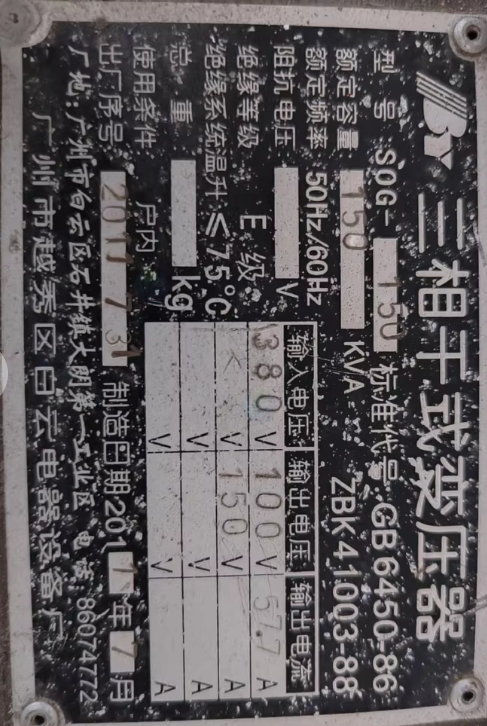 BY 三相干式变压器
型号 SOG-150 标准代号 GB6450-86
额定容量 150 KVA ZBK41003-88
额定频率 50Hz/60Hz
阻抗电压 V
绝缘等级 E 级
绝缘系统温升 ≤75°C
总重 kg
输入电压 输出电压 输出电流
380 V 100 V 57.7 A
V 150 V A
V V A
V V A
使用条件 户内
出厂序号 2011 7 31 制造日期 201 1 年 7 月
厂地:广州市白云区石井镇大朗第一工业区 电话 86074772
广州市越秀区白云电器设备厂